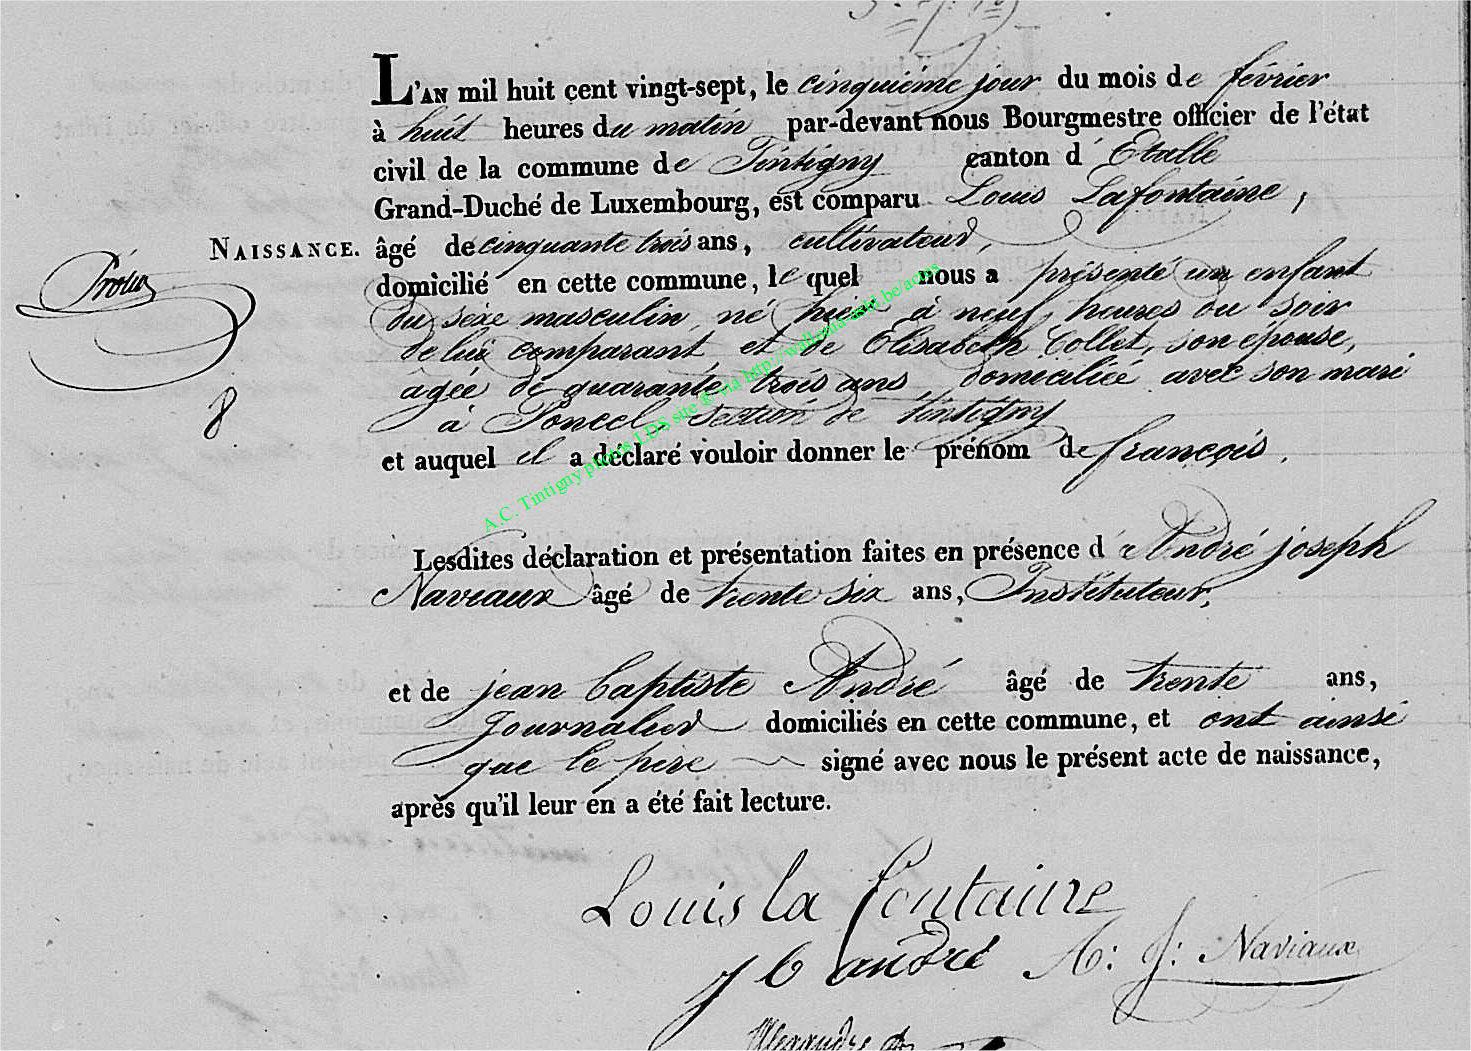 L'AN mil huit cent vingt-sept, le cinquième jour du mois de février
à huit heures du matin par-devant nous Bourgmestre officier de l'état
civil de la commune de Tintigny canton d'Etalle
Grand-Duché de Luxembourg, est comparu Louis Lafontaine,
NAISSANCE.
âgé de cinquante trois ans, cultivateur,
domicilié en cette commune, lequel nous a présenté un enfant
du sèxe masculin, né hier à neuf heures du soir
de lui comparant et de Elisabeth Collet, son épouse,
âgée de quarante trois ans, domiciliée avec son mari
8
à Poncel, section de Tintigny
et auquel il a déclaré vouloir donner le prénom de françois.
A.C. Tintigny photos LDS site @ via http://wallonia-asbl.be/actes
Lesdites déclaration et présentation faites en présence d'André joseph
Naviaux âgé de trente six ans, Instituteur,
et de jean baptiste André âgé de trente ans,
Journalier domiciliés en cette commune, et ont ainsi
que le père signé avec nous le présent acte de naissance,
après qu'il leur en a été fait lecture.
Louis la fontaine
J b andré A: J: Naviaux